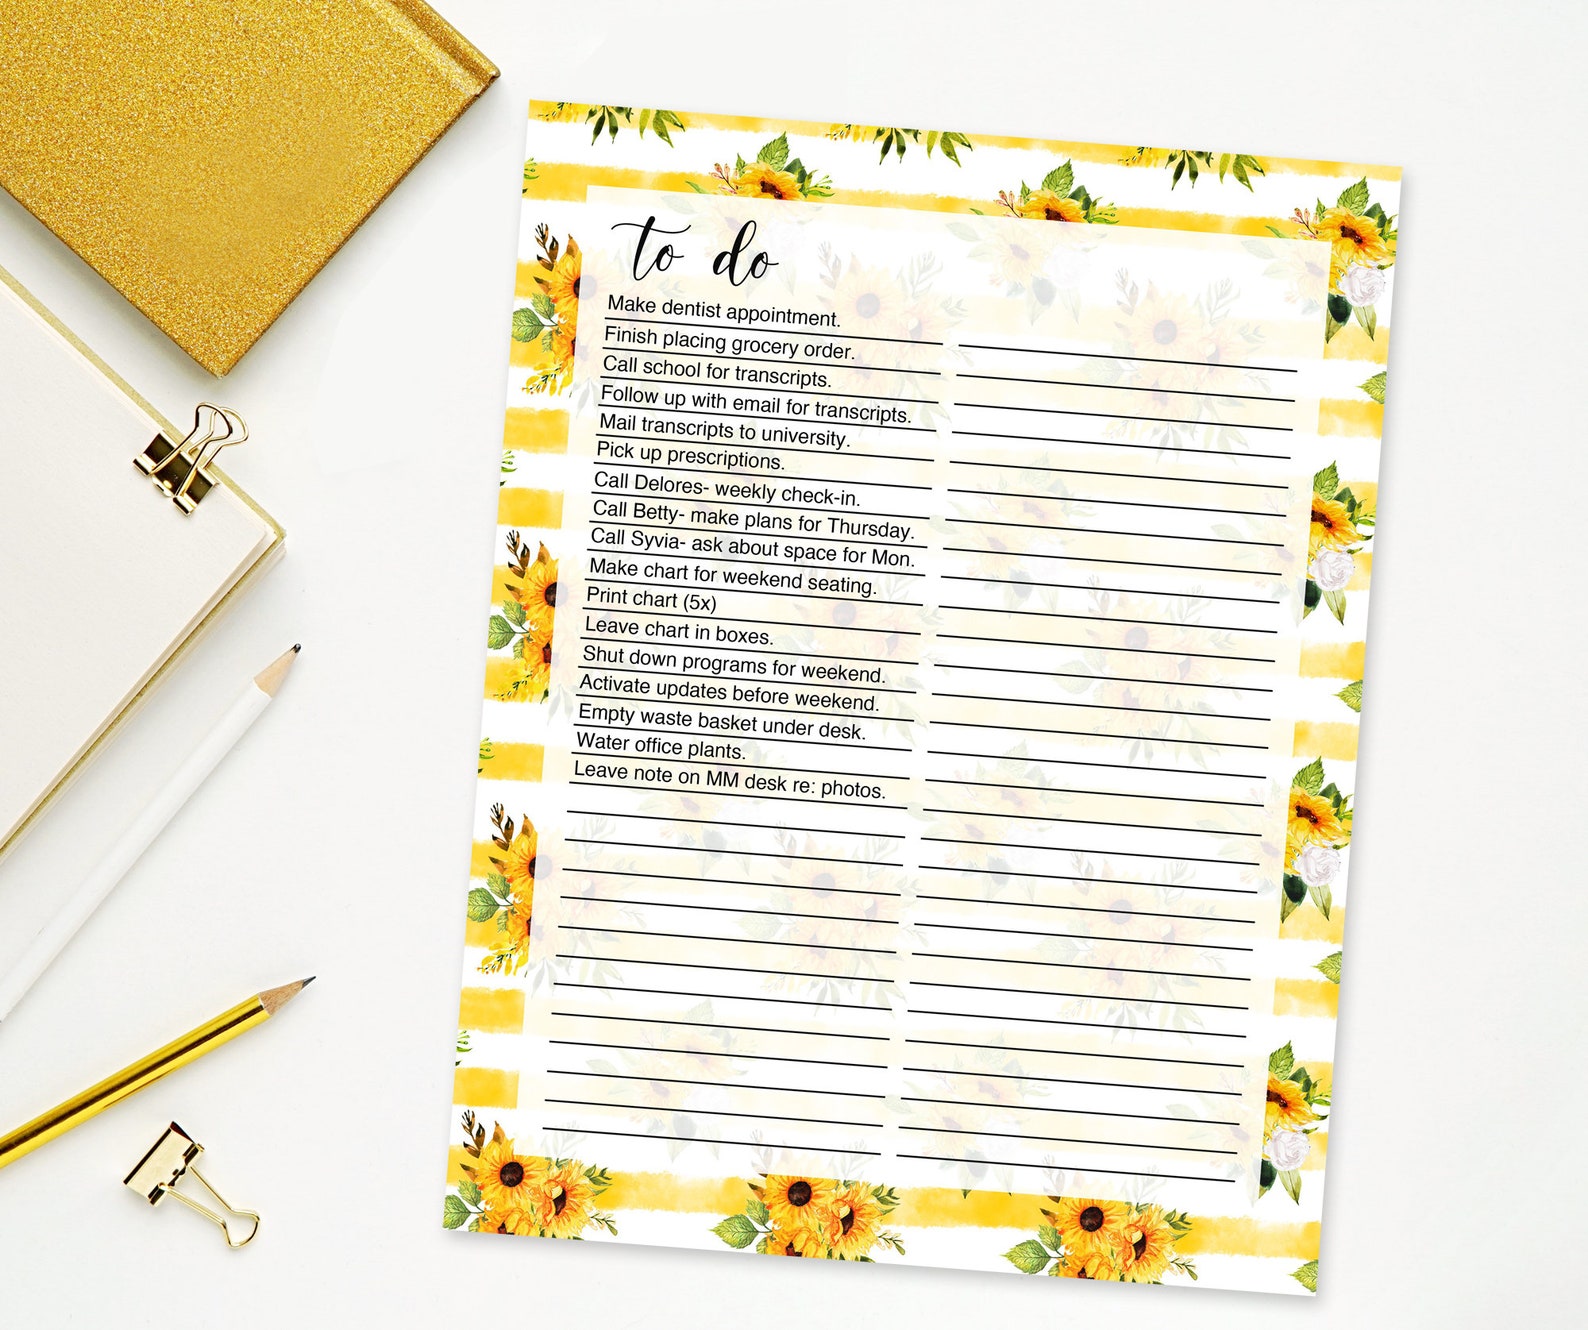 to do
Make dentist appointment.
Finish placing grocery order.
Call school for transcripts.
Follow up with email for transcripts.
Mail transcripts to university.
Pick up prescriptions.
Call Delores- weekly check-in.
Call Betty- make plans for Thursday.
Call Syvia- ask about space for Mon.
Make chart for weekend seating.
Print chart (5x)
Leave chart in boxes.
Shut down programs for weekend.
Activate updates before weekend.
Empty waste basket under desk.
Water office plants.
Leave note on MM desk re: photos.